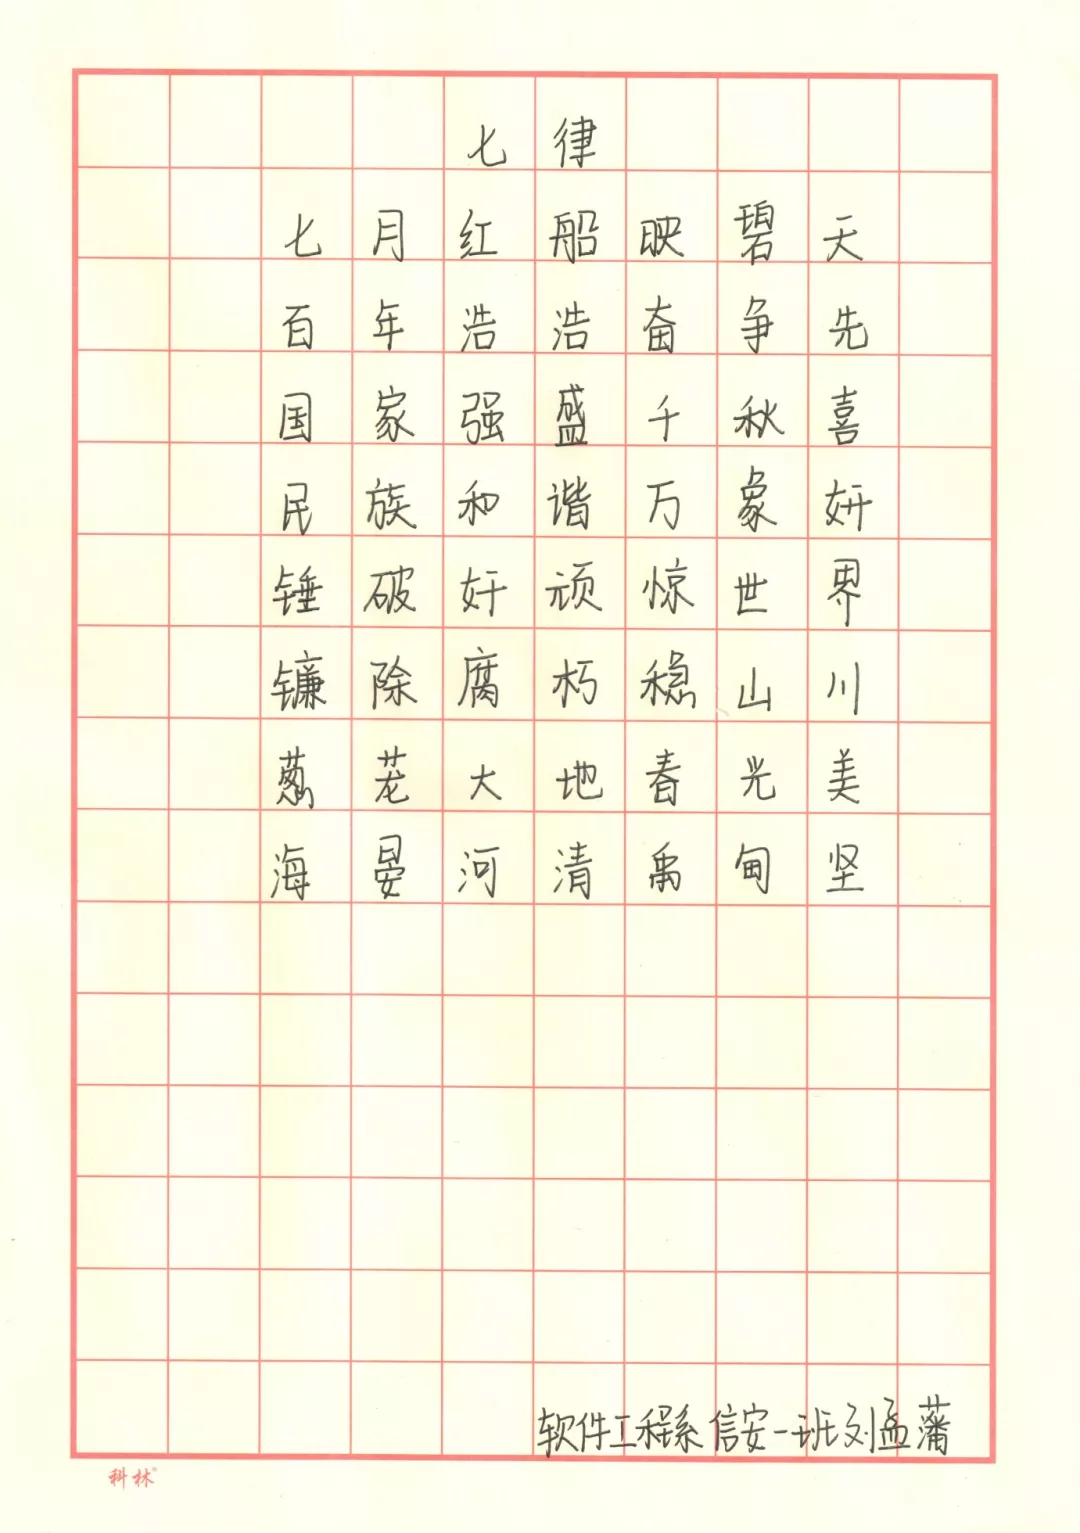 七律
七月红船映碧天
百年浩浩奋争先
国家强盛千秋喜
民族和谐万象妍
锤破奸顽惊世界
镰除腐朽稳山川
葱茏大地春光美
海晏河清禹甸坚
软件工程系信安一班刘孟藩
科林